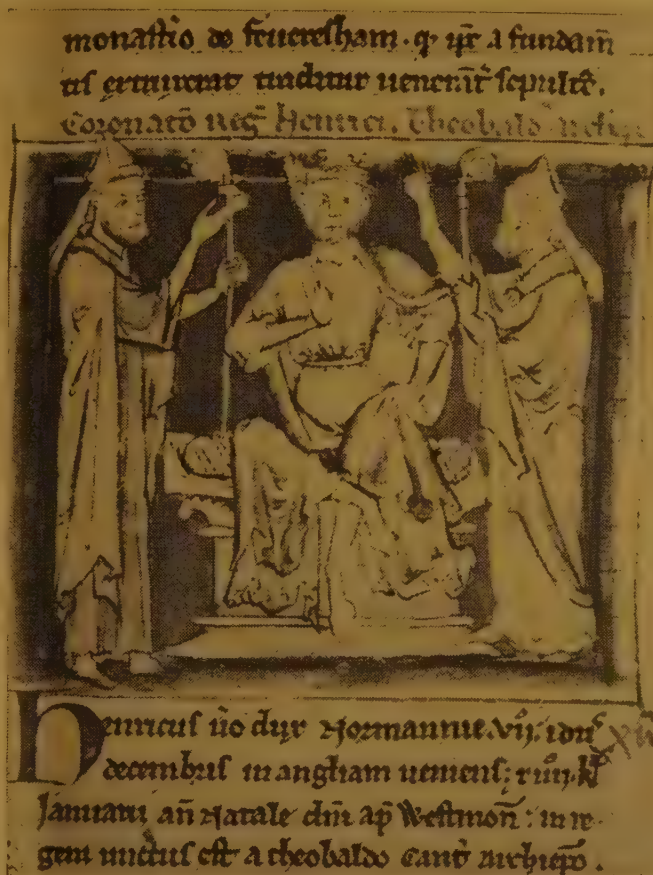 monastio de feueresham. q ipe a fundam̄
tis uenerāt sepultē.
Coronatō reḡ Henrici. Theobald
Henricus ūo dux Normannie. vij. idus
decembris in angliam ueniens; xiiij. kl̄
Januarii an̄ Natale dn̄i ap̄ Westmoñ: in re
gem unctus est a theobaldo cant̄ archiepō.